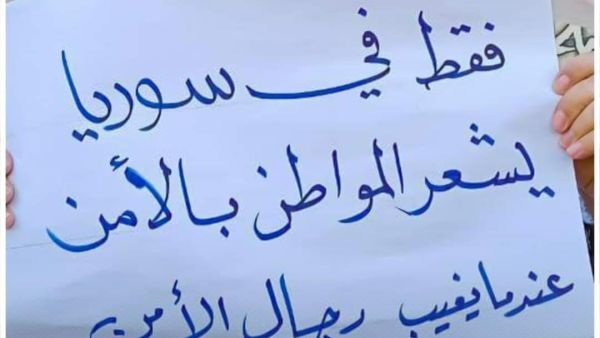 فقط في سوريا
يشعر المواطن بالأمن
عندما يغيب رجال الأمن